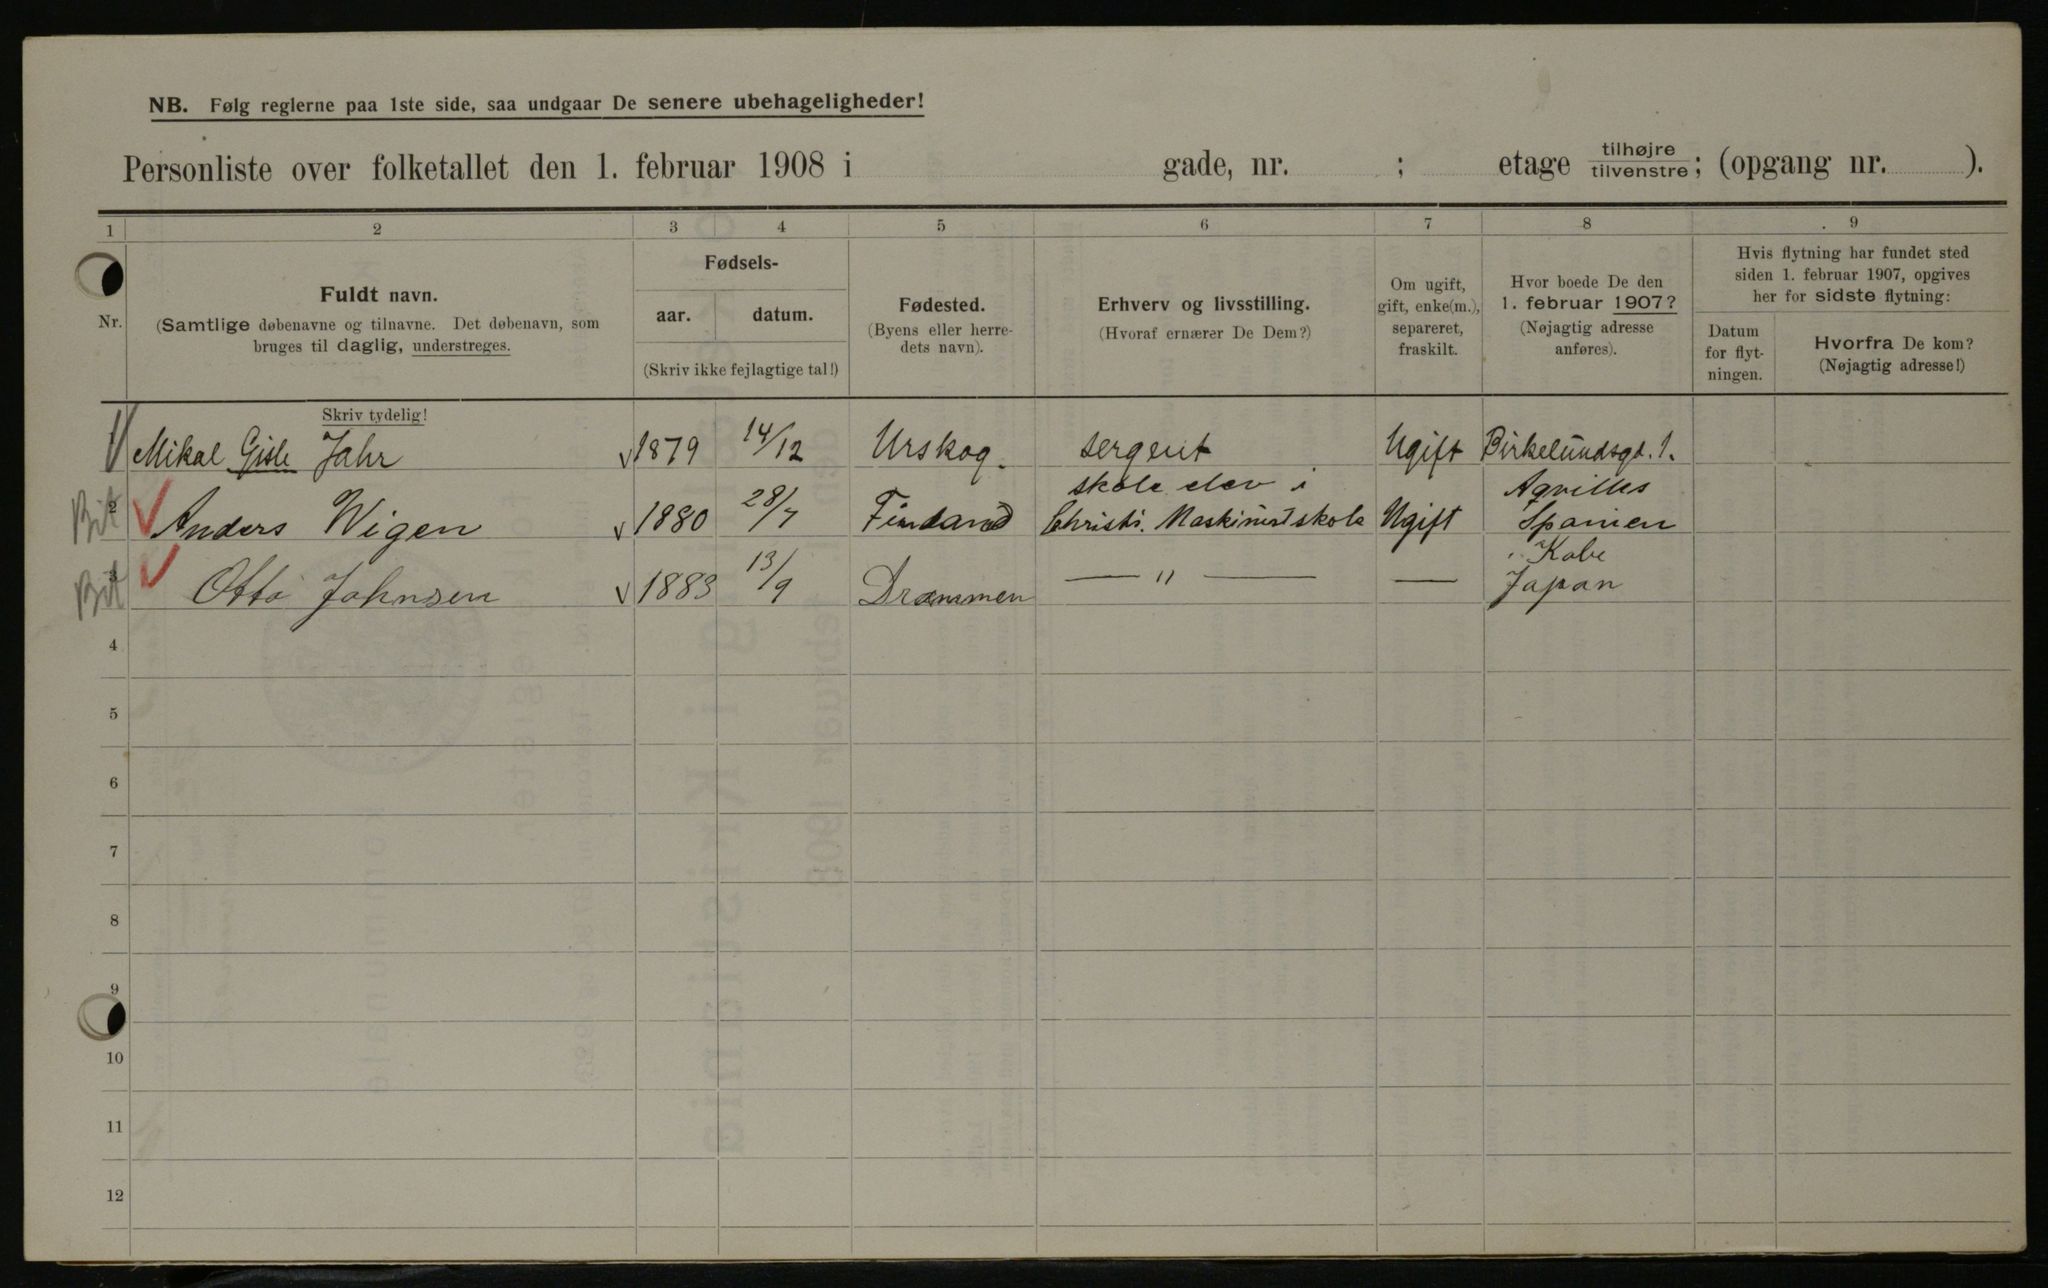 NB. Følg reglerne paa 1ste side, saa undgaar De senere ubehageligheder!
Personliste over folketallet den 1. februar 1908 i gade, nr. ; etage tilhøjre/tilvenstre; (opgang nr. ).
1 2 3 4 5 6 7 8 9
Nr.
Fuldt navn.
(Samtlige døbenavne og tilnavne. Det døbenavn, som
bruges til daglig, understreges.
Skriv tydelig!
Fødsels-
aar. datum.
(Skriv ikke fejlagtige tal!)
Fødested.
(Byens eller herre-
dets navn).
Erhverv og livsstilling.
(Hvoraf ernærer De Dem?)
Om ugift,
gift, enke(m.),
separeret,
fraskilt.
Hvor boede De den
1. februar 1907?
(Nøjagtig adresse
anføres).
Hvis flytning har fundet sted
siden 1. februar 1907, opgives
her for sidste flytning:
Datum
for flyt-
ningen.
Hvorfra De kom?
(Nøjagtig adresse!)
Mikal Gisle Jahr 1879 14/12 Urskog. sergent Ugift Birkelundsgd. 1.
skole elev i Aqvilles
2 Anders Wigen 1880 28/7 Christi. Maskinistskole Ugift Spanien
Kobe
3 Otto Johnsen 1883 13/9 Drammen — " — — Japan
4
5
6
7
8
9
10
11
12